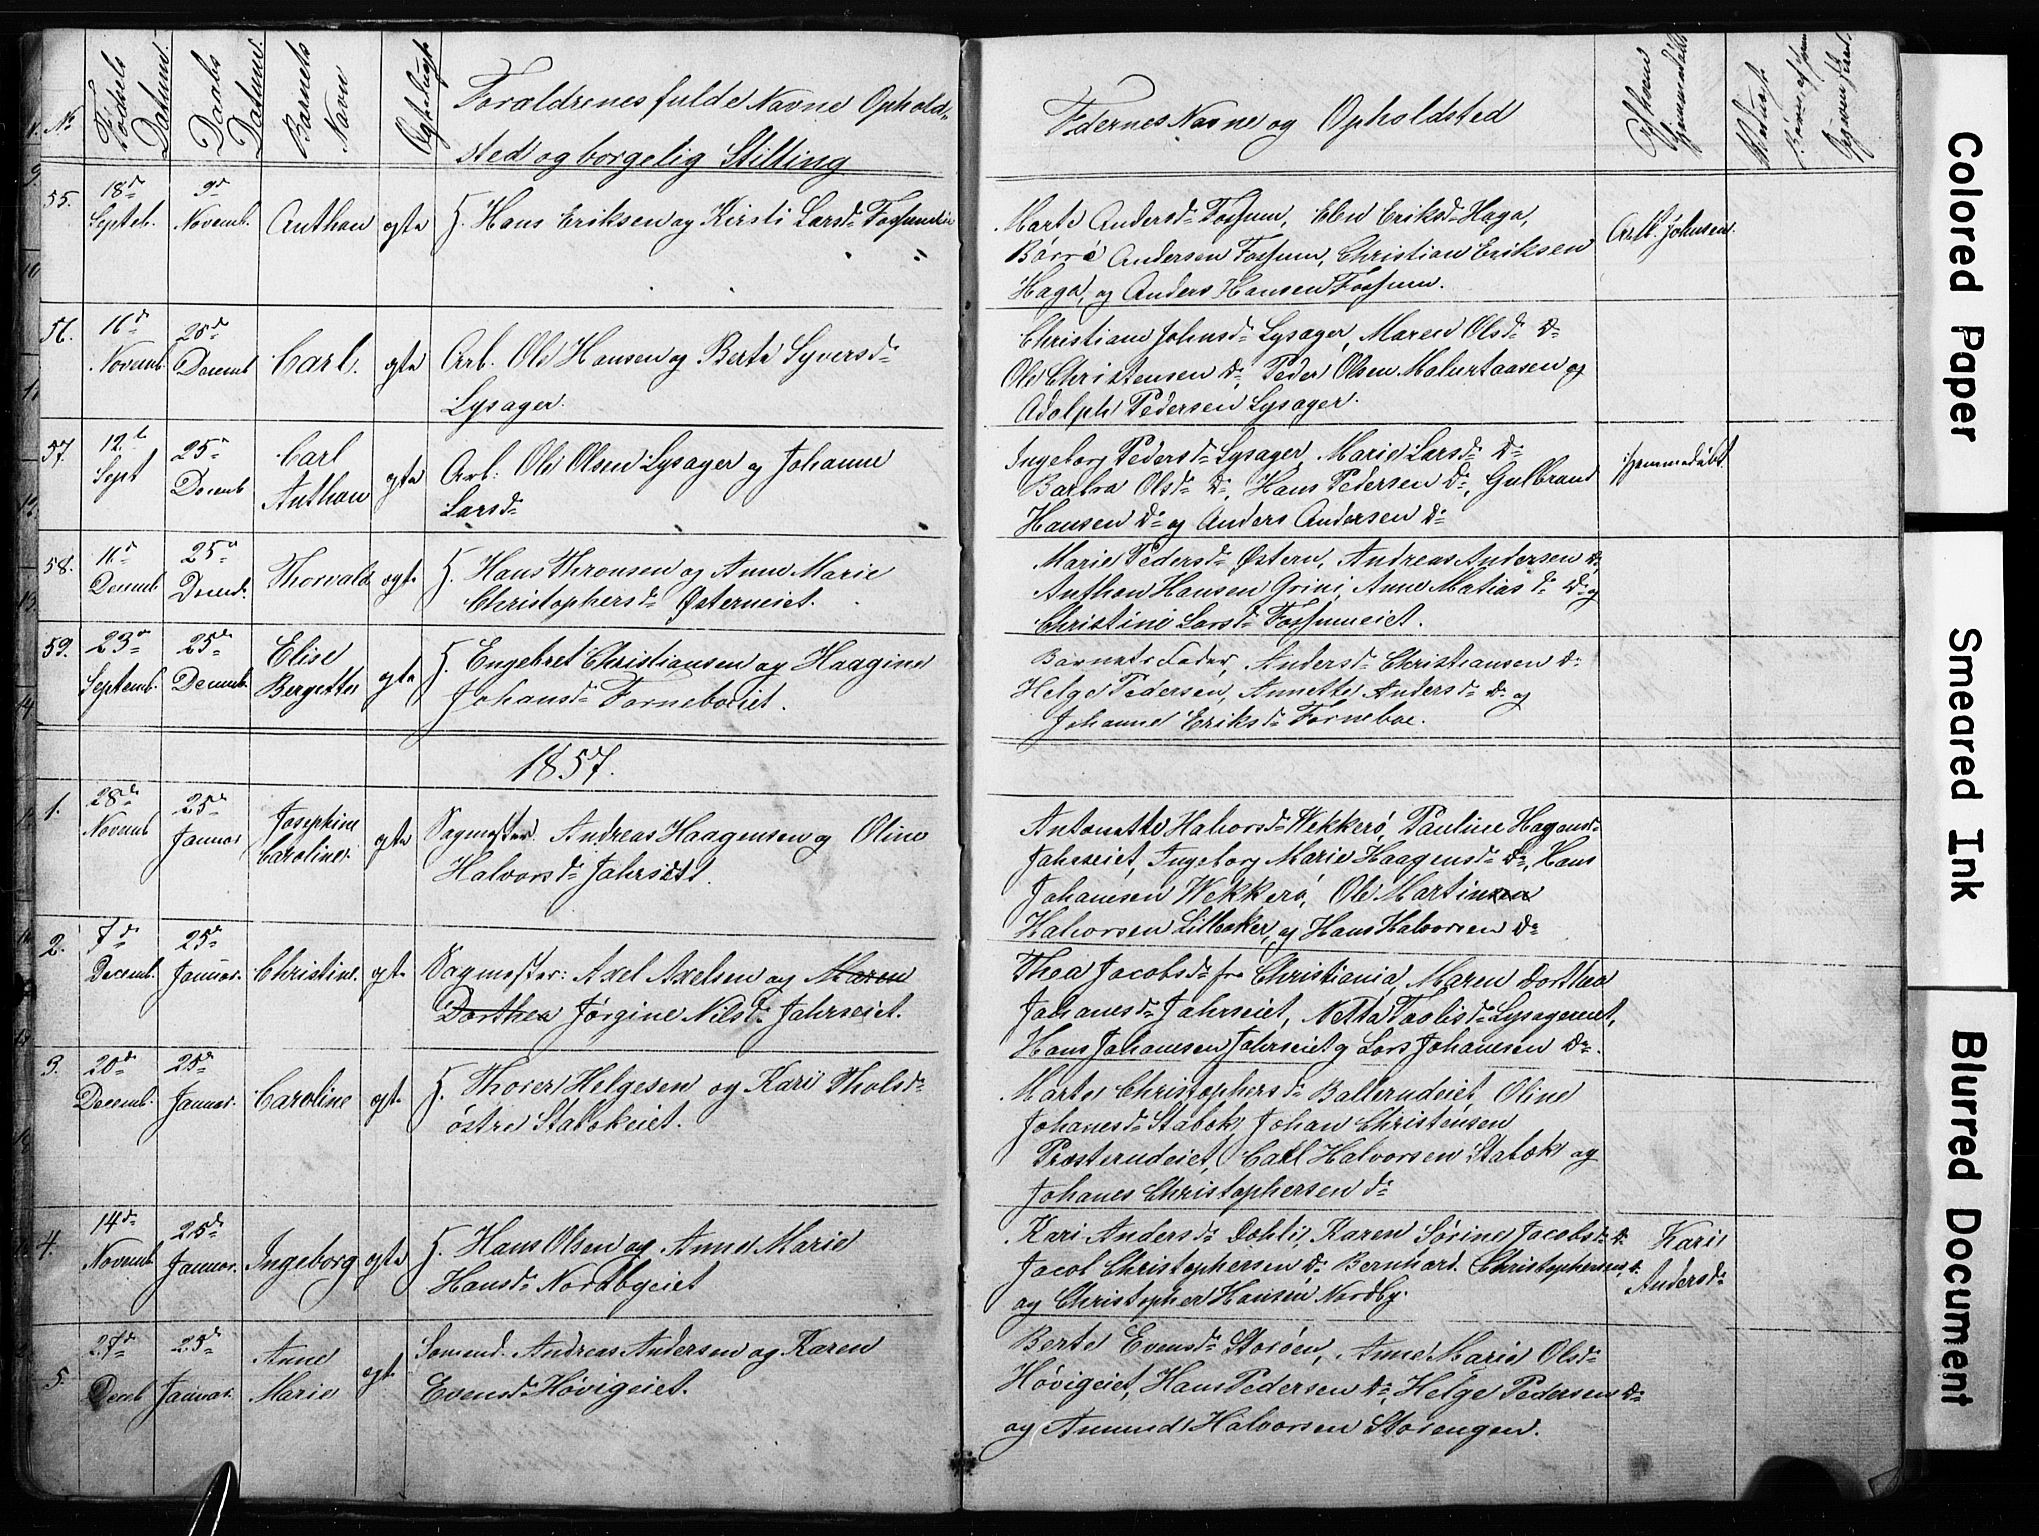 No
Fødsels Datum
Daabs Datum
Barnets Navn
Forældrenes fulde Navne Opholds-
sted og borgelig Stilling
Fadernes Navne og Opholdsted
55.
18d Septeb.
9d Novemb.
Anthon
ægte
H. Hans Eriksen og Kirsti Larsd. Fossumeie
Marte Andersd. Fossum, Eben Eriksd. Haga,
Børre Andersen Fossum, Christian Eriksen
Haga, og Anders Hansen Fossum.
Arb. Johnsen.
56.
16d Novemb.
25d Decemb
Carl.
ægte
Arb. Ole Hansen og Berte Syversd.
Lysager.
Christiane Johnsd. Lysager, Maren Olsd. Do
Ole Christensen Do, Peder Olsen Malurtaasen og
Adolph Pedersen Lysager.
57.
12t Sept
25d Decemb
Carl
Anthon
ægte
Arb. Ole Olsen Lysager og Johanne
Larsd.
Ingeborg Pedersd. Lysager, Marie Larsd. Do
Barbra Olsd. Do, Hans Pedersen Do, Gulbrand
Hansen Do og Anders Andersen Do
hjemmedøbt.
58.
16d Decemb
25d Decemb.
Thorvald
ægte
H. Hans Thronsen og Anne Marie
Christophersd. Østerneiet.
Marie Pedersd. Østern, Andreas Andersen Do,
Anthon Hansen Grini, Anne Matiasd. Do og
Christine Larsd. Fossumeiet.
59.
23d Septemb.
25d Decemb.
Elise
Bergette
ægte
H. Engebret Christiansen og Haagine
Johansd. Forneboeiet.
Barnets Fader, Andersd. Christiansen Do
Helge Pedersen, Annette Andersd. Do og
Johanne Eriksd. Forneboe.
1857.
1.
28d Novemb
25d Januar
Josephine
Caroline.
ægte
Sagmester. Andreas Haagensen og Oline
Halvorsd. Jahrseiet.
Antonette Halvorsd. Wekkerø, Pauline Hagensd.
Jahrseiet, Ingeborg Marie Haagensd. Do, Hans
Johanesen Wekkerø, Ole Martinsen
Halvorsen Lilleaker, og Hans Halvorsen Do
2.
7d Decemb.
25d Januar.
Christine.
ægte
Sagmester: Axel Axelsen og Maren
Dorthea Jørgine Nilsd. Jahrseiet.
Thea Jacobsd. fra Christiania, Maren Dorthea
Johanesd. Jahrseiet, Netta Taalisd. Lysagereiet,
Hans Johanesen Jahrseiet og Lars Johanesen Do.
3.
20d Decemb.
25d Januar.
Caroline
ægte
H. Thorer Helgesen og Kari Tholsd.
østre Stabekeiet.
Marte Christophersd. Ballerudeiet, Oline
Johanesd. Stabek, Johan Christensen
Presterudeiet, Carl Halvorsen Stabek og
Johanes Christophersen Do
4.
14d Novemb
25d Januar.
Ingeborg
ægte
H. Hans Olsen og Anne Marie
Hansd. Nordbyeiet
Kari Andersd. Dohli, Karen Sørine Jacobsd. Do
Jacob Christophersen, Do Bernhard Christophersen, Do
og Christopher Hansen Nordby.
Kari
Andersd.
5.
27d Decemb
25d Januar.
Anne
Marie
ægte
Sømend. Andreas Andersen og Karen
Evensd. Høvigeiet.
Berte Evensd. Storøen, Anne Marie Olsd.
Høvigeiet, Hans Pedersen Do, Helge Pedersen Do
og Amund Halvorsen Storengen.
Colored Paper
Smeared Ink
Blurred Document